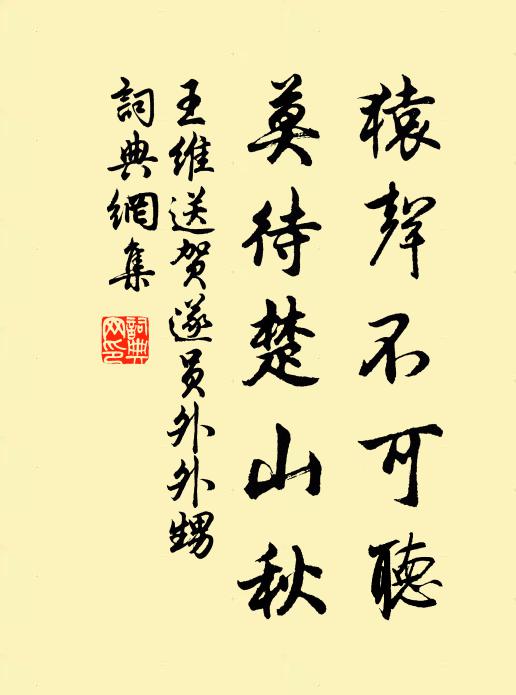 猿聲不可聽
莫待楚山秋
王維送贺遂员外外甥
詞典網集
詞典网印